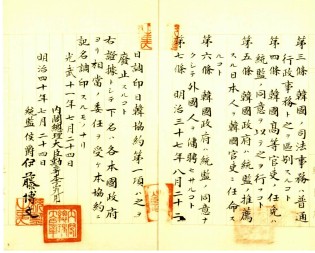 第三條 韓國ノ司法事務ハ普通
行政事務ト之ヲ區別スルコト
第四條 韓國高等官吏ノ任免ハ
統監ノ同意ヲ以テ之ヲ行フコト
第五條 韓國政府ハ統監ノ推薦
スル日本人ヲ韓國官吏ニ任命ス
ルコト
第六條 韓國政府ハ統監ノ同意ナ
クシテ外國人ヲ傭聘セサルコト
第七條 明治三十七年八月二十二
日調印日韓協約第一項ハ之ヲ
廢止スルコト
右證據トシテ下名ハ各本國政府
ヨリ相當ノ委任ヲ受ケ本協約ニ
記名調印スルモノナリ
光武十一年七月二十四日
內閣總理大臣勳二等李完用
明治四十年七月二十四日
統監侯爵伊藤博文